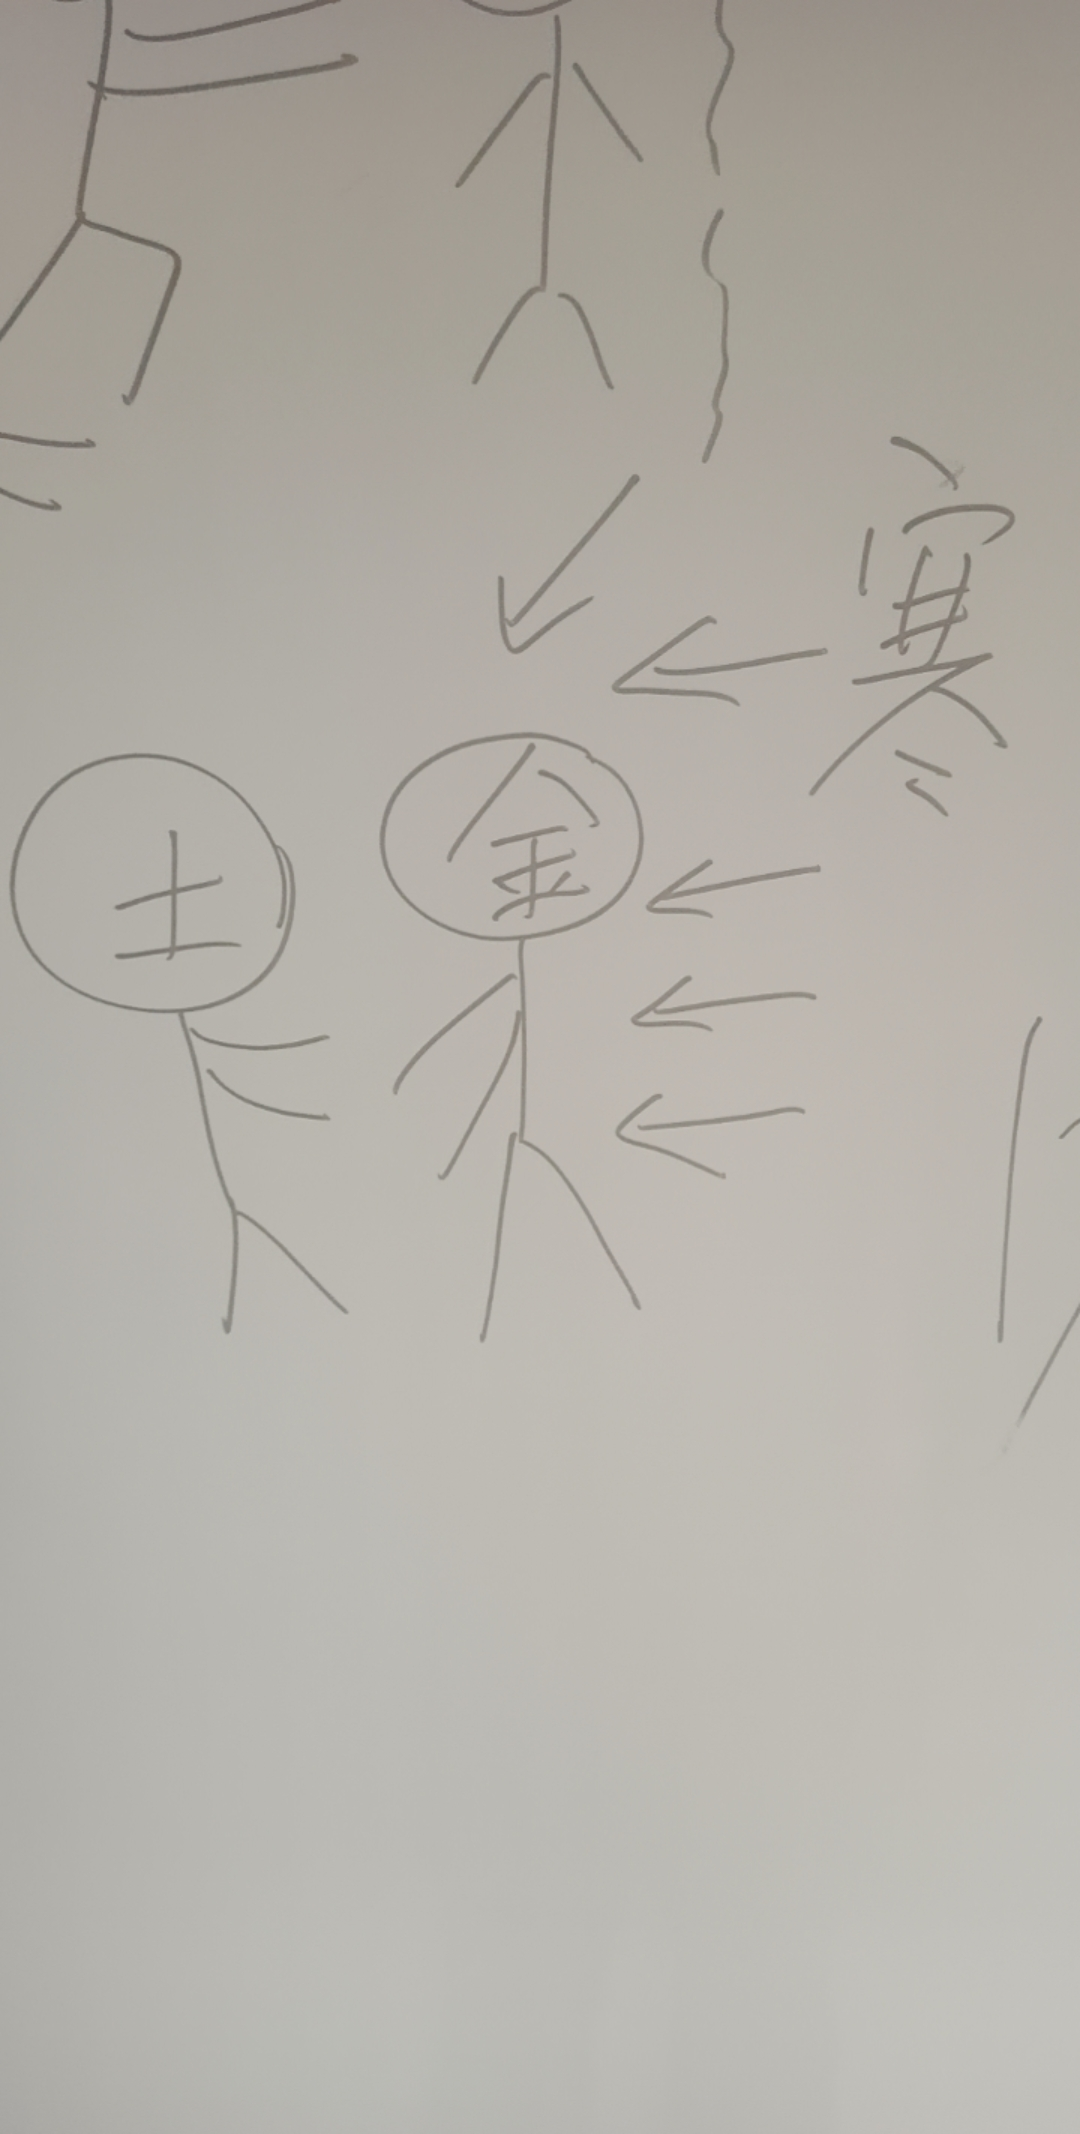 寒
土
金